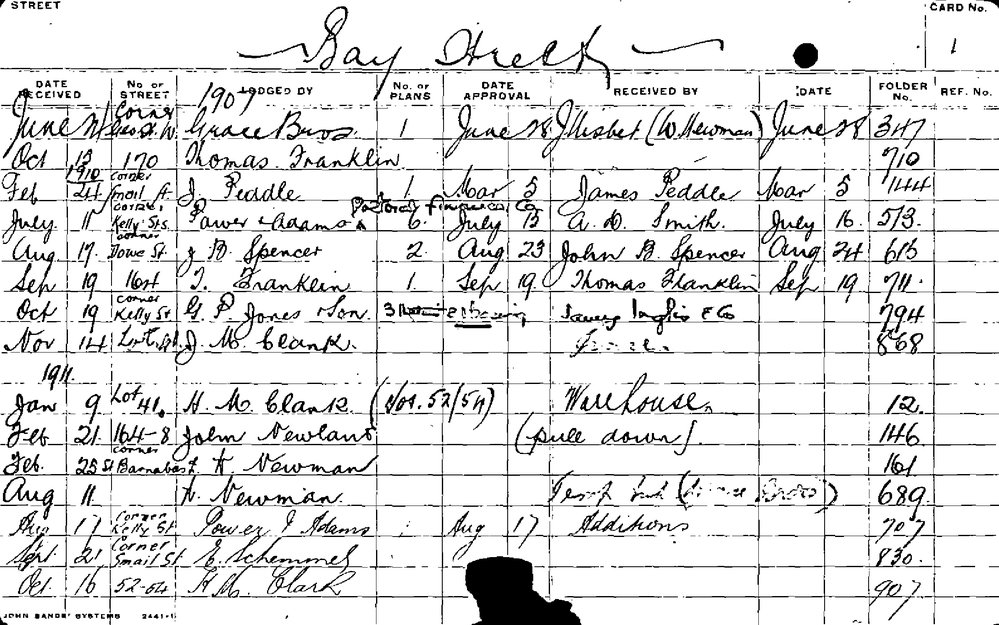 STREET
CARD No.
Bay Street
1
DATE RECEIVED No. or STREET LODGED BY No. or PLANS DATE APPROVAL RECEIVED BY DATE FOLDER No. REF. No.
1907
June 21 Corner W. Grace Bros. 1 June 28 J Nisbet (W. Newman) June 28 347
Oct 15 170 Thomas Franklin 710
1910
Feb 24 corner Smail St J. Peddle 1 Mar 5 James Peddle Mar 5 144
Pastoral Finance Co
July 11 corner Kelly St. Power & Adams 6 July 15 A. D. Smith. July 16. 573.
Aug 17. corner Dowe St. J B. Spencer 2. Aug 23 John B Spencer Aug 24 613
Sep 19 164 T. Franklin 1. Sep 19. Thomas Franklin Sep 19 711.
Oct 19 corner Kelly St G. P. Jones & Son. 3 Inglis & Co 794
Nov 14 J. M. Clark. 868
1911.
Jan 9 Lot 41. H. M. Clark. (Nos. 52/54) Warehouse. 12.
Feb 21. 164-8 John Newland (pull down). 146.
Feb. 25 corner St Barnabas H. Newman 161
Aug 11 H. Newman. 689.
Aug 17 Corner Kelly St Power & Adams Aug 17 Additions 707
Sept 21 Corner Smail St E. Schemmel 830.
Oct. 16 52-54 H M. Clark 907
JOHN SANDS' SYSTEMS 2441-1